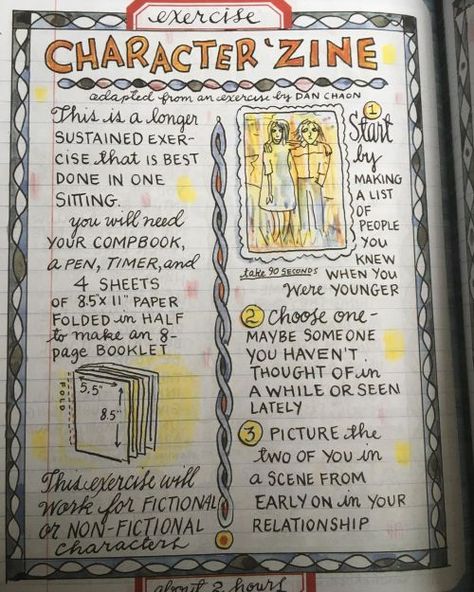 exercise
CHARACTER 'ZINE
adapted from an exercise by DAN CHAON
This is a longer
SUSTAINED EXER-
CISE that is BEST
DONE IN ONE
SITTING.
you will need
YOUR COMPBOOK,
a PEN, TIMER, and
4 SHEETS
OF 8.5" x 11" PAPER
FOLDED in HALF
to make an 8-
page BOOKLET
FOLD
5.5"
8.5"
This exercise will
work for FICTIONAL
or NON-FICTIONAL
characters
1
Start
by
MAKING
A LIST
OF
PEOPLE
YOU
KNEW
take 90 SECONDS WHEN YOU
Were YOUNGER
2 CHOOSE ONE-
MAYBE SOMEONE
YOU HAVEN'T
THOUGHT OF in
A WHILE OR SEEN
LATELY
3 PICTURE the
two OF YOU in
a SCENE FROM
EARLY ON in YOUR
RELATIONSHIP
about 2 hours